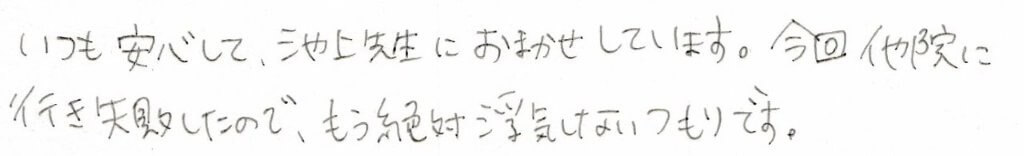 いつも安心して、池上先生におまかせしています。今回他院に
行き失敗したので、もう絶対浮気しないつもりです。